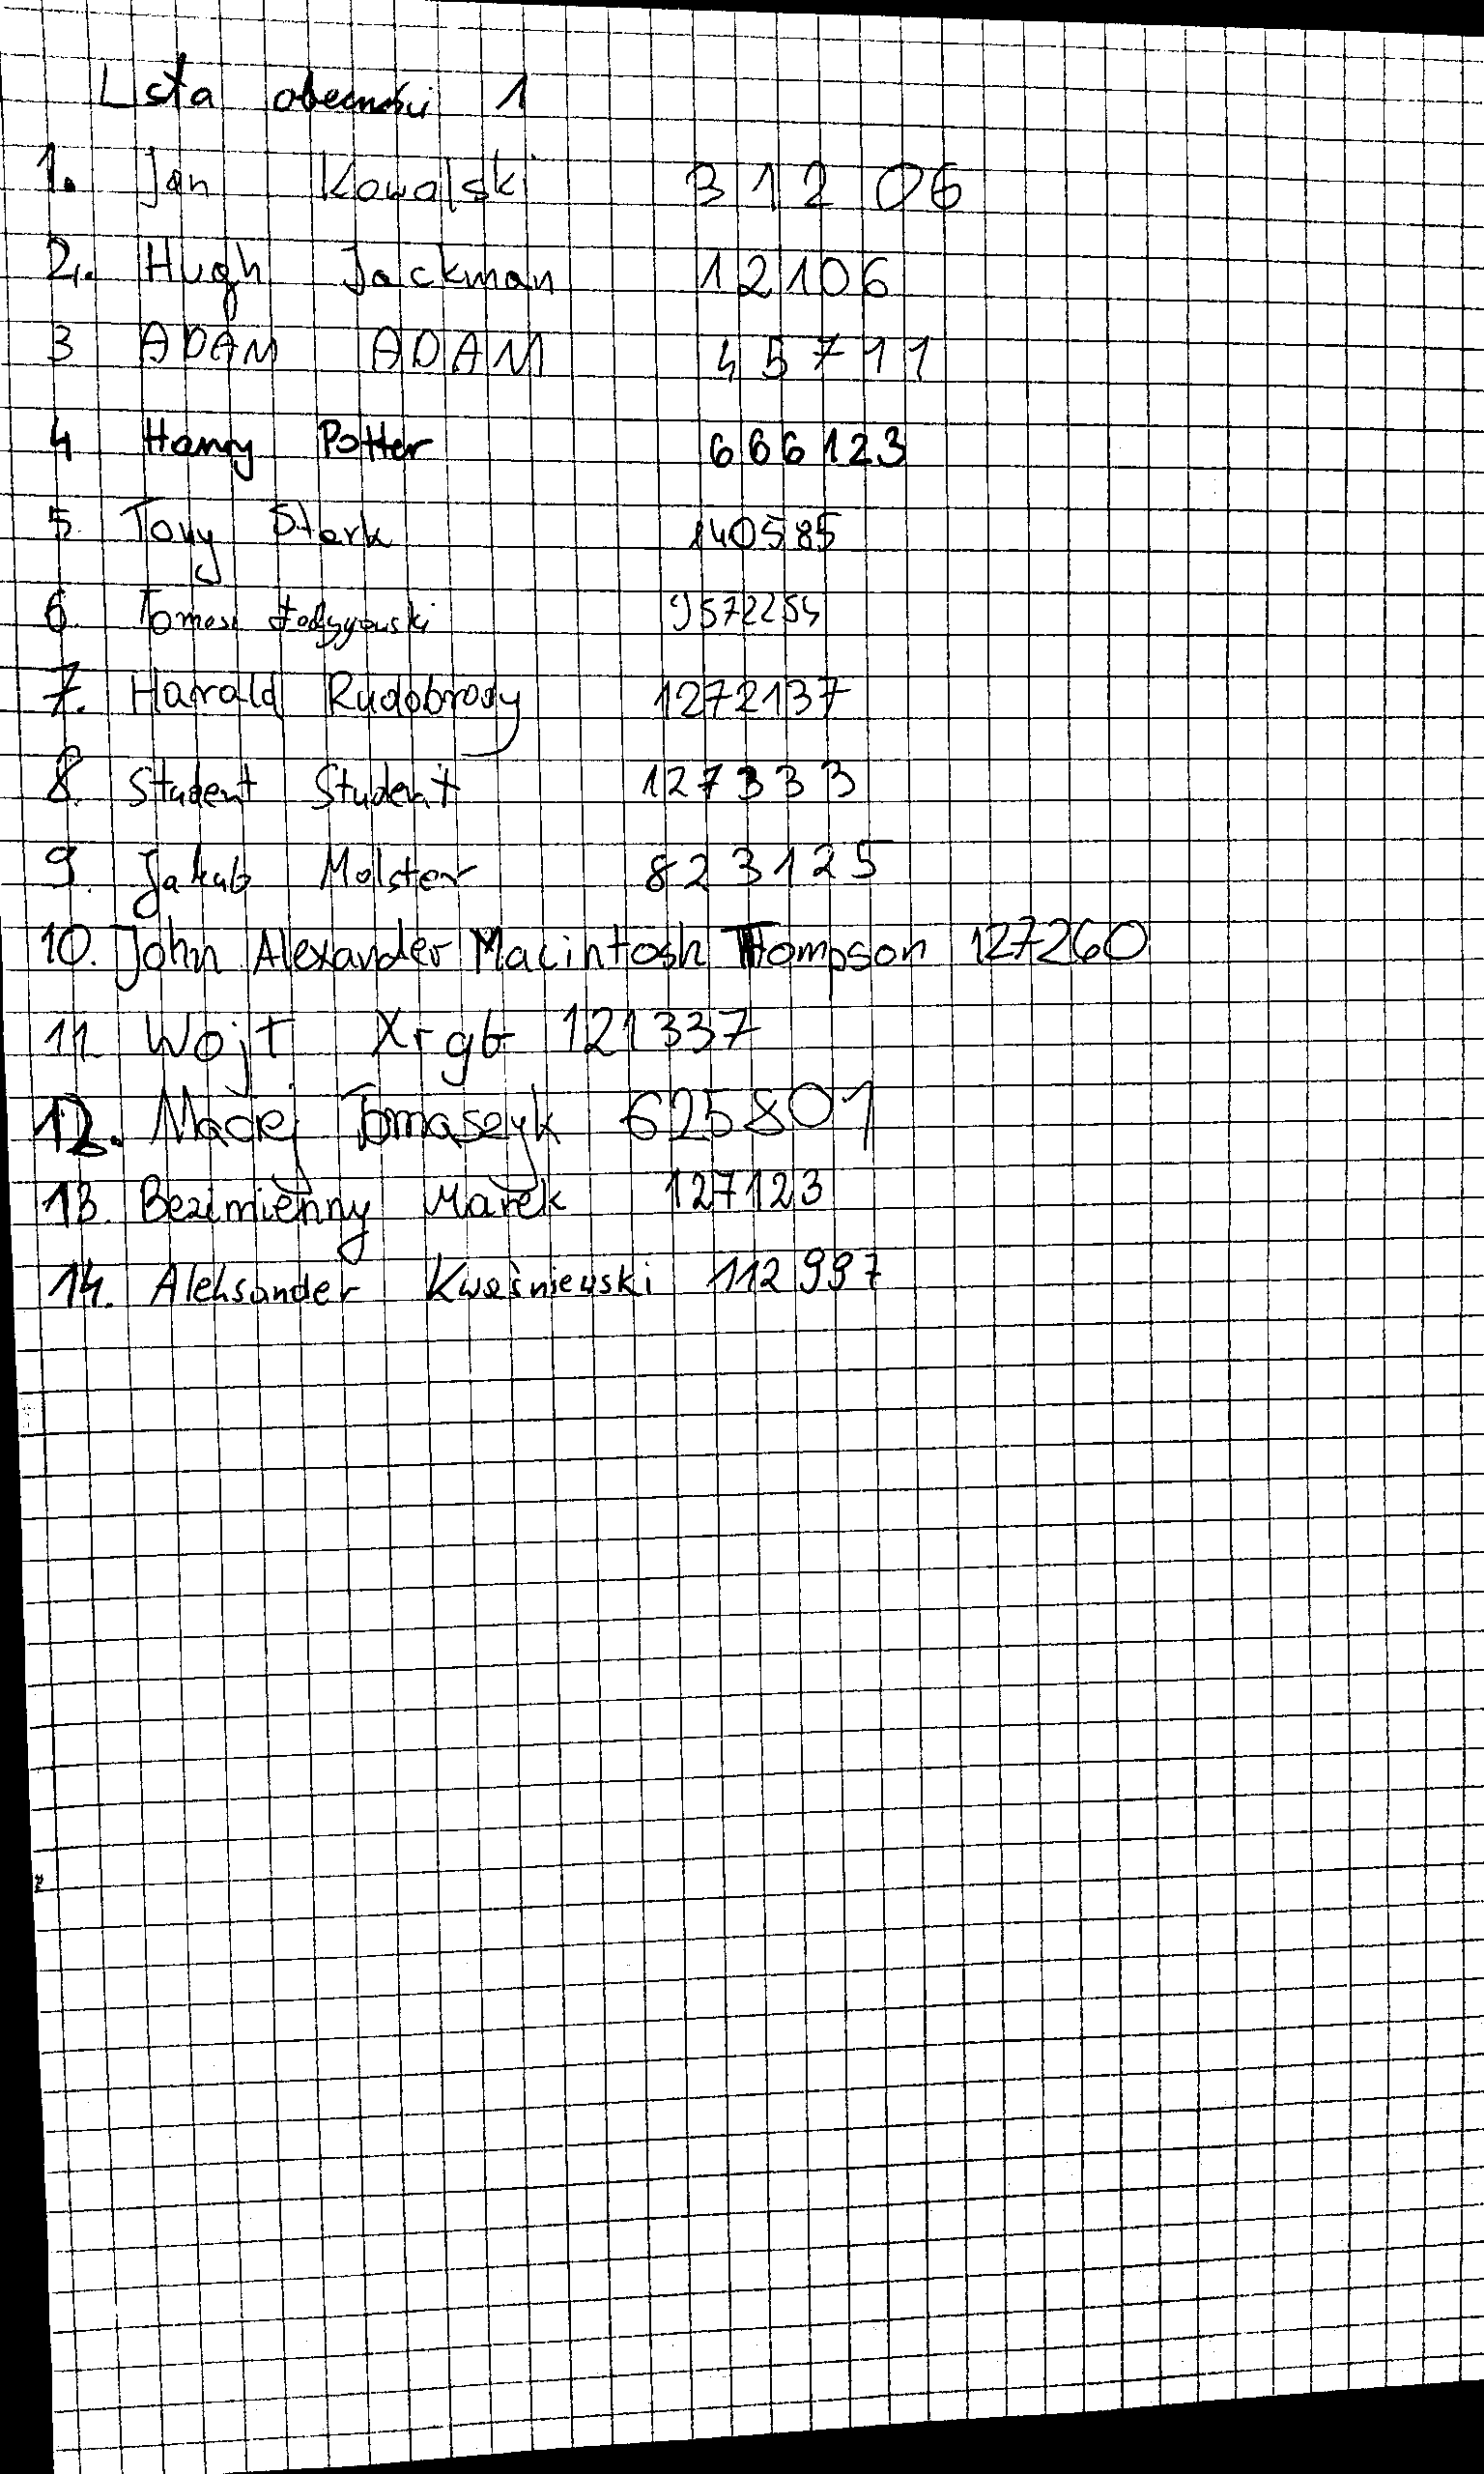 Lista obecności 1
1. Jan Kowalski 31206
2. Hugh Jackman 12106
3 ADAM ADAM 45711
4 Harry Potter 666123
5. Tony Stark 140585
6. Tomasz 9572254
7. Harald Rudobrody 1272137
8. Student Student 127333
9. Jakub Molster 823125
10. John Alexander Macintosh Thompson 127260
11. Wojt Xrgb 121337
12. Maciej Tomaszyk 625801
13. Bezimienny Marek 127123
14. Aleksander Kwaśniewski 112997